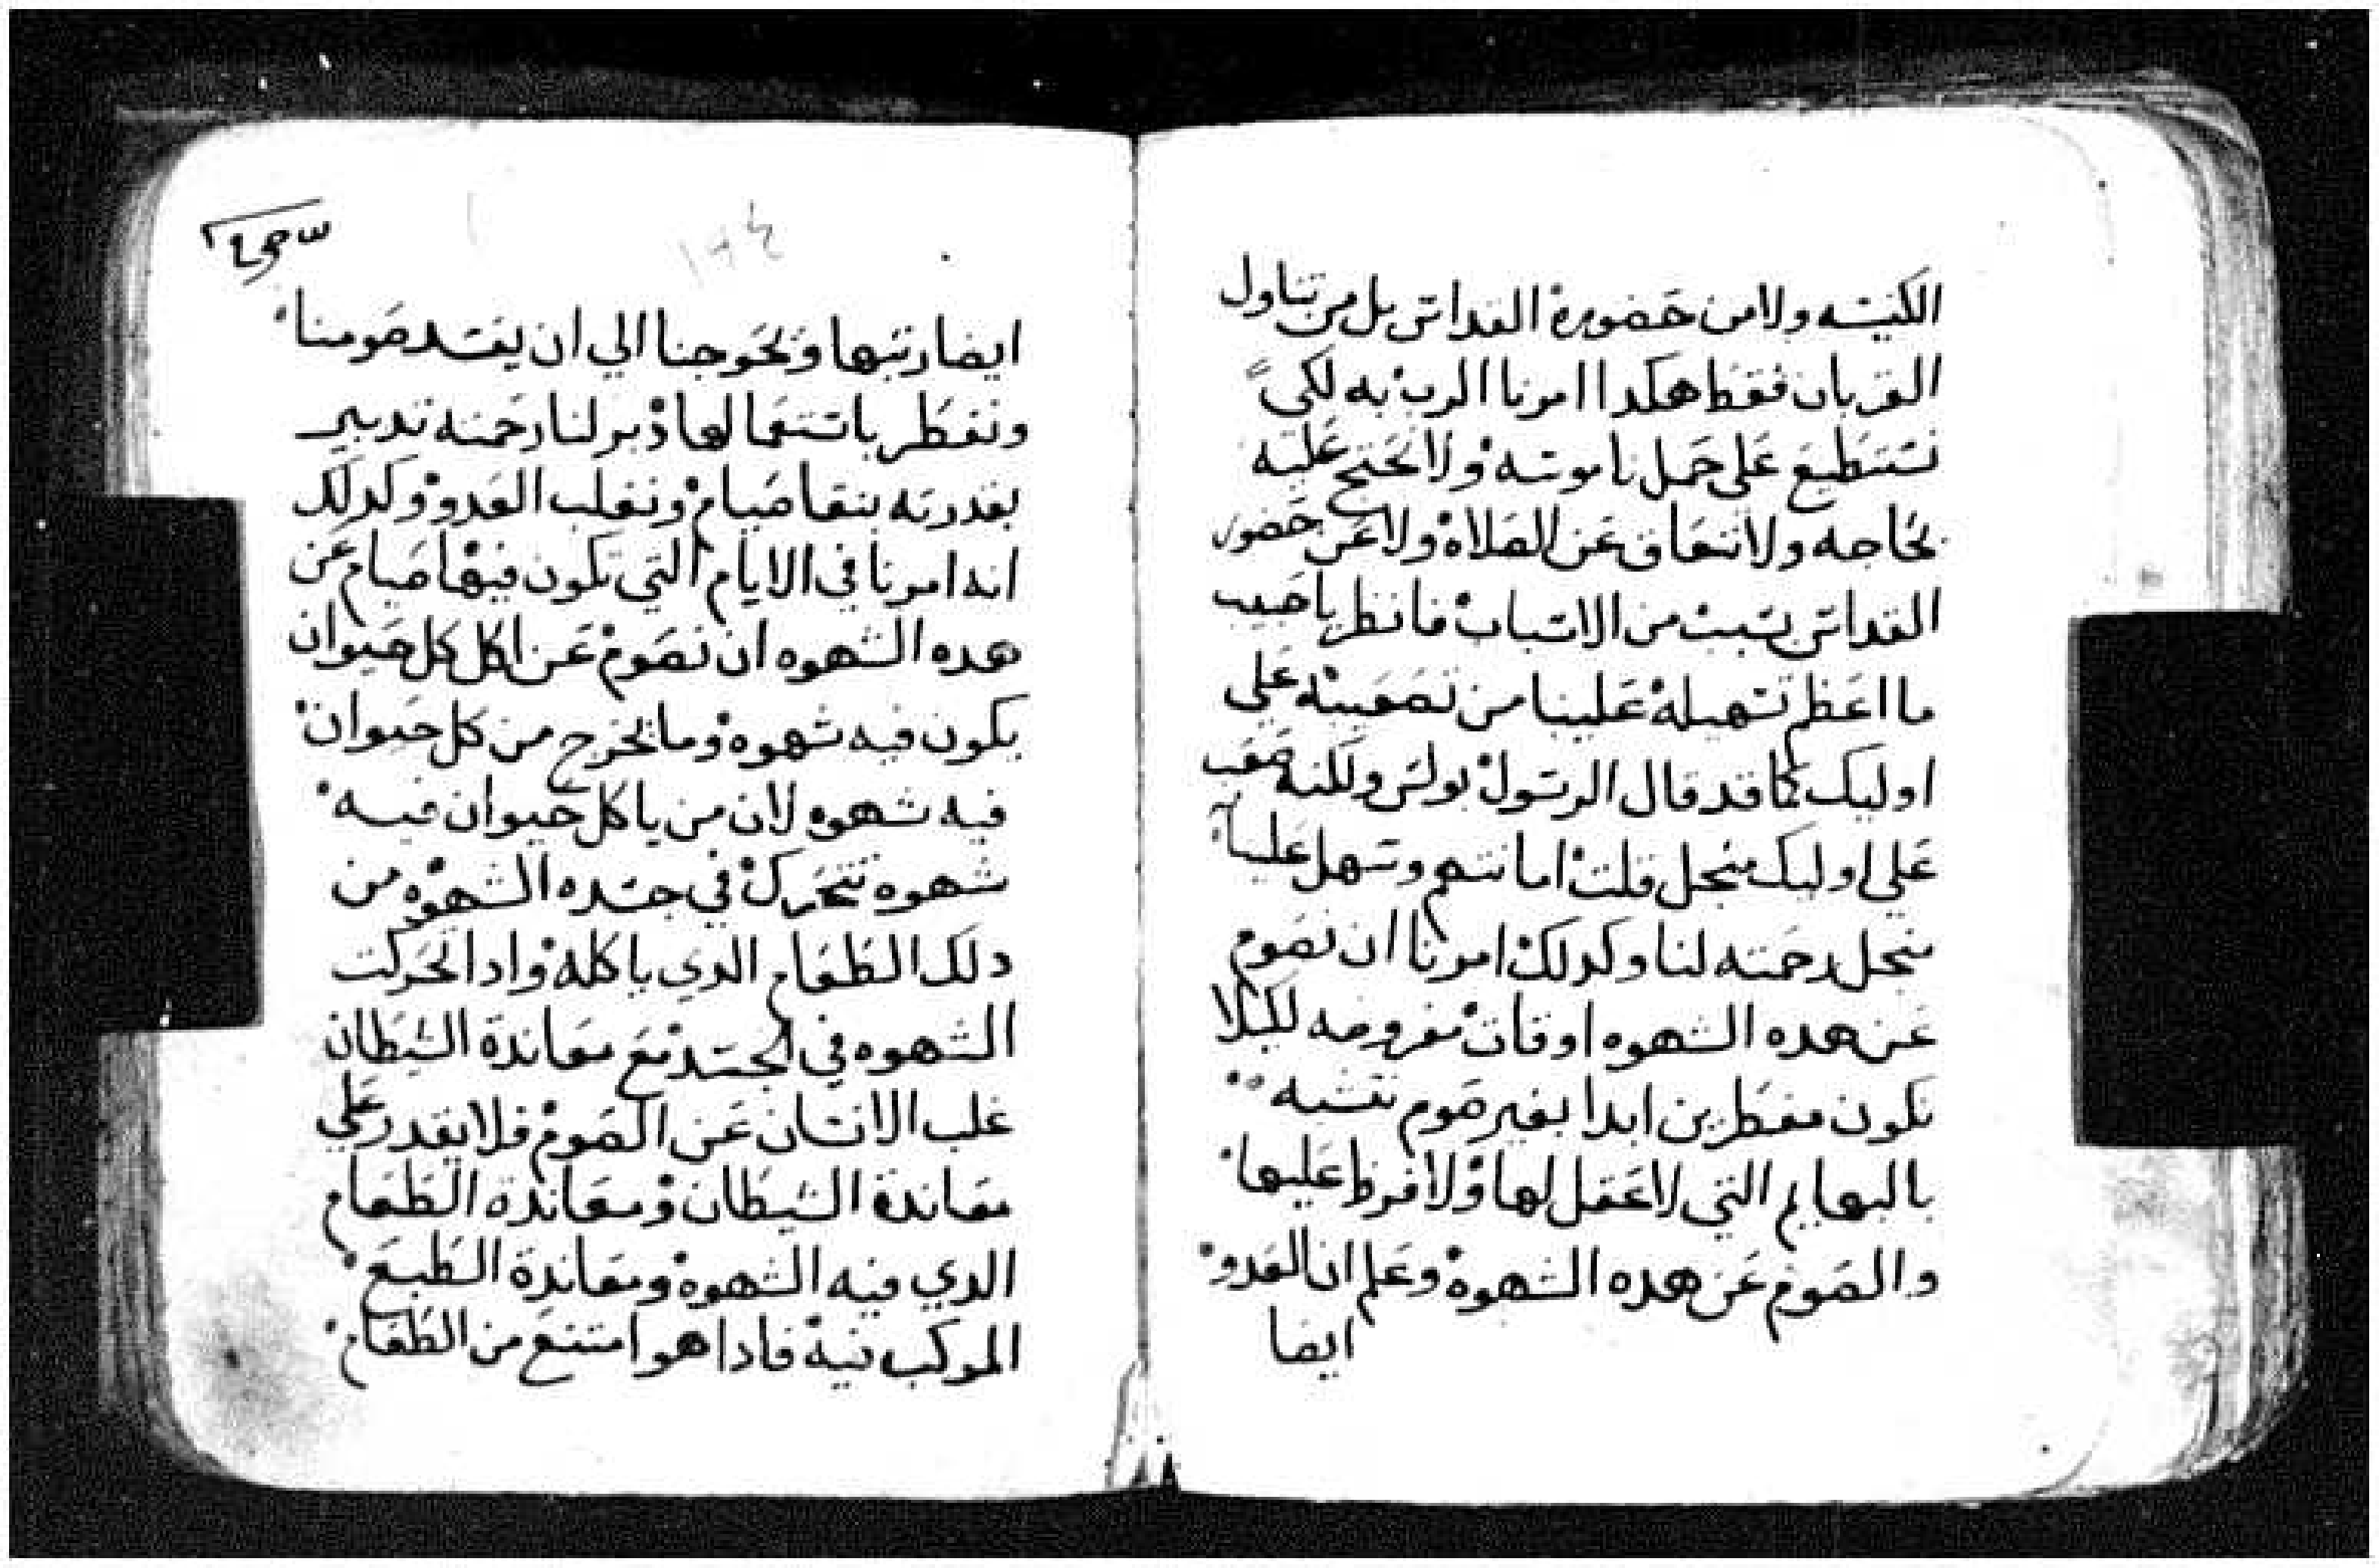 الكنيسه ولا من حضوره القداس بل من تناول
القربان فقط هكدا امرنا الرب به لكي
نستطيع على حمل ناموسه ولا نحتج عليه
بحاجه ولا نتعاق عن الصلاه ولا عن حضور
القداس بسبب من الاسباب فانظر يا حبيب
ما اعظم تسهيله علينا من تصعيبه على
اوليك كما قد قال الرسول بولس ولكنه صعب
على اوليك منجل قلت امانتهم وسهل علينا
منجل رحمته لنا وكدلك امرنا ان نصوم
عن هده الشهوه اوقات مفروضه لكيلا
نكون مفطرين ابدا بغير صوم نتشبه
بالبهايم التي لا عقل لها ولا فرط عليها
والصوم عن هده الشهوه وعلم ان العدو
ايضا
١٧٤
ايضا رتبها ويحوجنا الي ان يفسد صومنا
ونفطر باستعمالها دبر لنا رحمته تدبير
بقدرته بنقا صيام ونغلب العدو وكدلك
انه امرنا في الايام التي تكون فيها صيام عن
هده الشهوه ان نصوم عن اكل كل حيوان
يكون فيه شهوه وما يخرج من كل حيوان
فيه شهوه لان من ياكل حيوان فيه
شهوه تتحرك في جسده الشهوه من
دلك الطعام الدي ياكله وادا تحركت
الشهوه في الجسد مع معاندة الشيطان
غلب الانسان عن الصوم فلا يقدر علي
معاندة الشيطان ومعاندة الطعام
الدي فيه الشهوه ومعاندة الطبع
المركب فيه فادا هو امتنع من الطعام